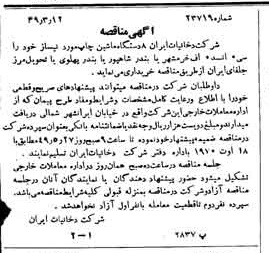 شماره ۲۳۷۱۹ ۴۹ر۳ر۱۲
آگهی مناقصه
شرکت دخانیات ایران ۸ دستگاه ماشین چاپ مورد نیاز خود را
سی اند اف خرمشهر یا بندر شاهپور یا بندر پهلوی یا تحویل مرز
جلفای ایران از طریق مناقصه خریداری مینماید.
داوطلبان شرکت در مناقصه میتوانند پیشنهادهای صریح و قطعی
خود را با اطلاع و رعایت کامل مشخصات و شرایط و مفاد طرح پیمان که از
اداره معاملات خارجی این شرکت واقع در خیابان ایرانشهر شمالی دریافت
میدارند و مبلغ دویست هزار ریال وجه نقد یا ضمانتنامه بانکی بعنوان سپرده شرکت
در مناقصه ضمیمه پیشنهاد خود نموده تا ساعت ۹ صبح روز ۴۹ر۵ر۲۷ مطابق با
۱۸ اوت ۱۹۷۰ باداره دفتر شرکت دخانیات ایران تسلیم نمایند.
جلسه مناقصه در ساعت ده صبح همان روز در اداره معاملات خارجی
تشکیل میشود حضور پیشنهاد دهندگان یا نمایندگان آنان در جلسه
مناقصه آزاد و شرکت در مناقصه بمنزله قبولی کلیه شرایط مناقصه می‌باشد.
سپرده نفر دوم تا قطعیت معامله با نفر اول آزاد نخواهد شد.
شرکت دخانیات ایران
پ ۲۸۳۷ ۱-۲